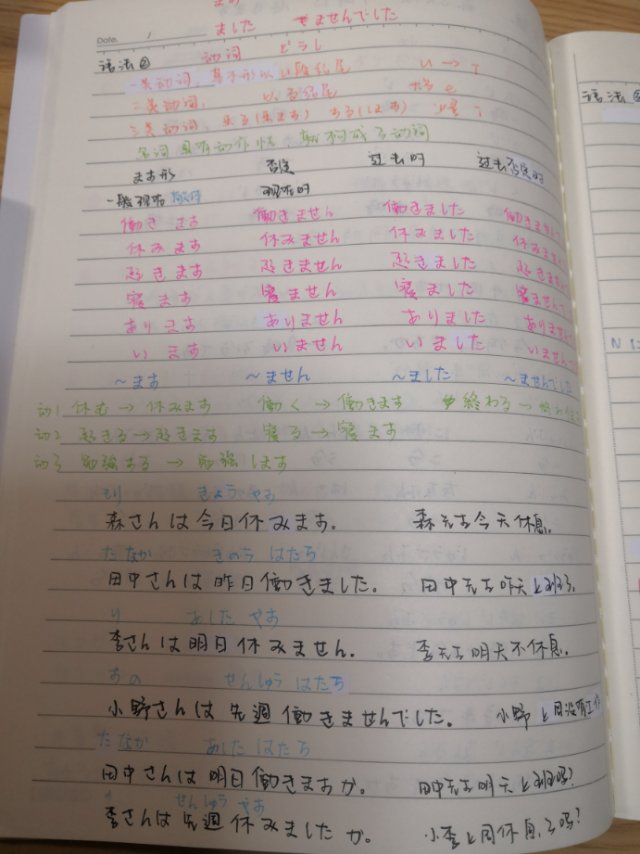 ました ませんでした
Date. 1
语法②
动词
一类动词,
い → う
二类动词, 以 结尾
三类动词, 来る(来ます) する(します)
名词具有动作性 就构成了动词
ます形 否定 过去时 过去否定时
一般现在 现在时
働きます 働きません 働きました 働きません
休みます 休みません 休みました 休みません
起きます 起きません 起きました 起きません
寝ます 寝ません 寝ました 寝ません
あります ありません ありました ありません
います いません いました いません
~ます ~ません ~ました ~ませんでした
动1 休む → 休みます 働く → 働きます 終わる →
动2 起きる → 起きます 寝る → 寝ます
动3 勉強する → 勉強します
もり きょう やす
森さんは今日休みます。 森先生今天休息。
たなか きのう はたら
田中さんは昨日働きました。 田中先生昨天上班了。
り あした やす
李さんは明日休みません。 李先生明天不休息。
おの せんしゅう はたら
小野さんは先週働きませんでした。 小野上周没有工作
たなか あした はたら
田中さんは明日働きますか。 田中先生明天上班吗?
せんしゅう やす
李さんは先週休みましたか。 小李上周休息了吗?
语法②
N